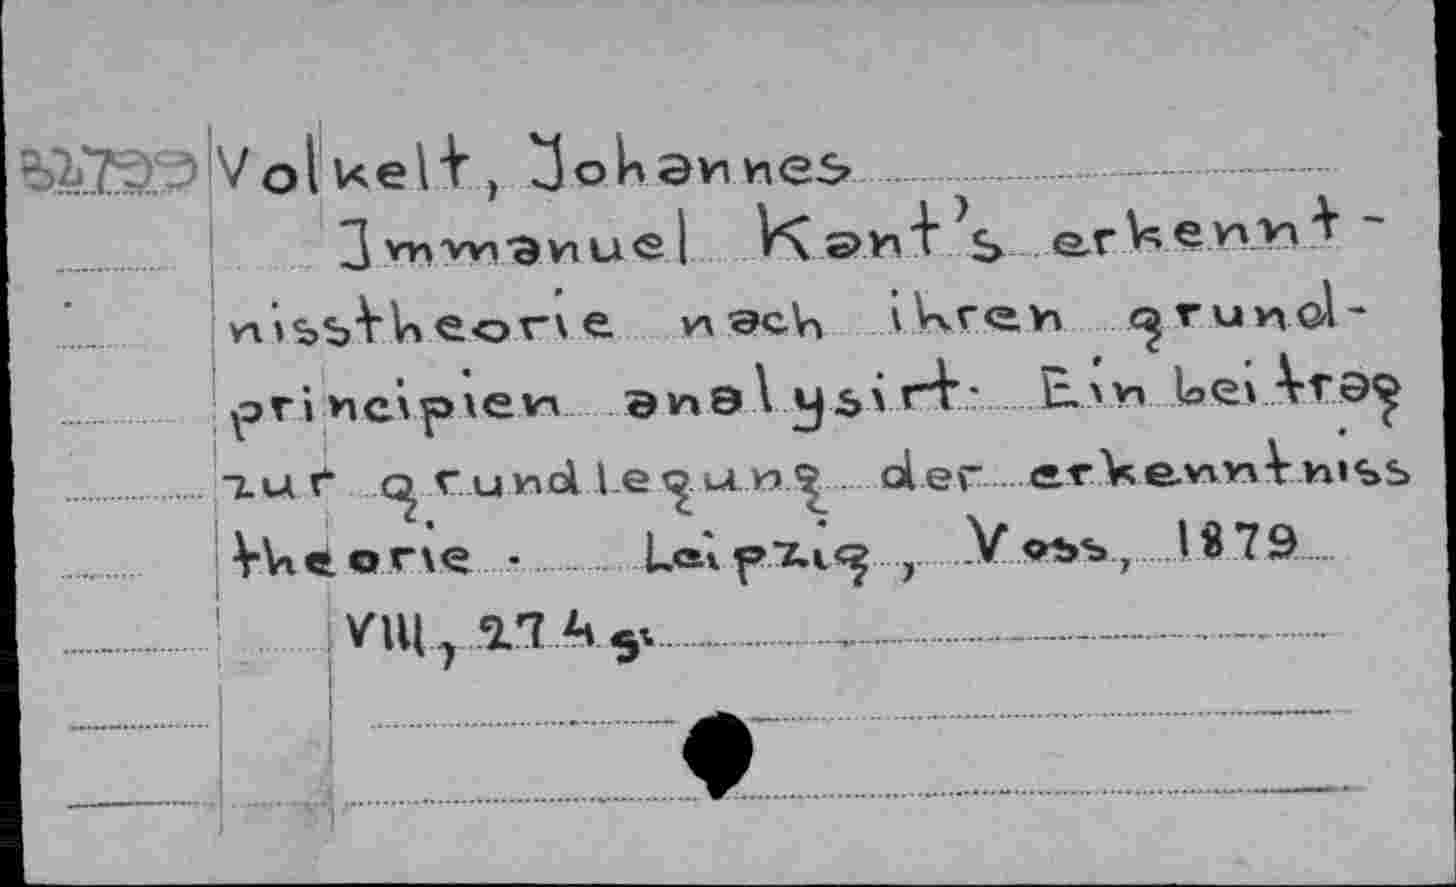 Volkelt, Johannes
Immanuel Kant's erkennt-
nisstheorie nach ihren grund-
principien analysirt. Ein beitrag
zur grundlegung der erkenntniss
theorie. Leipzig, Voss, 1879
VIII, 274 s.